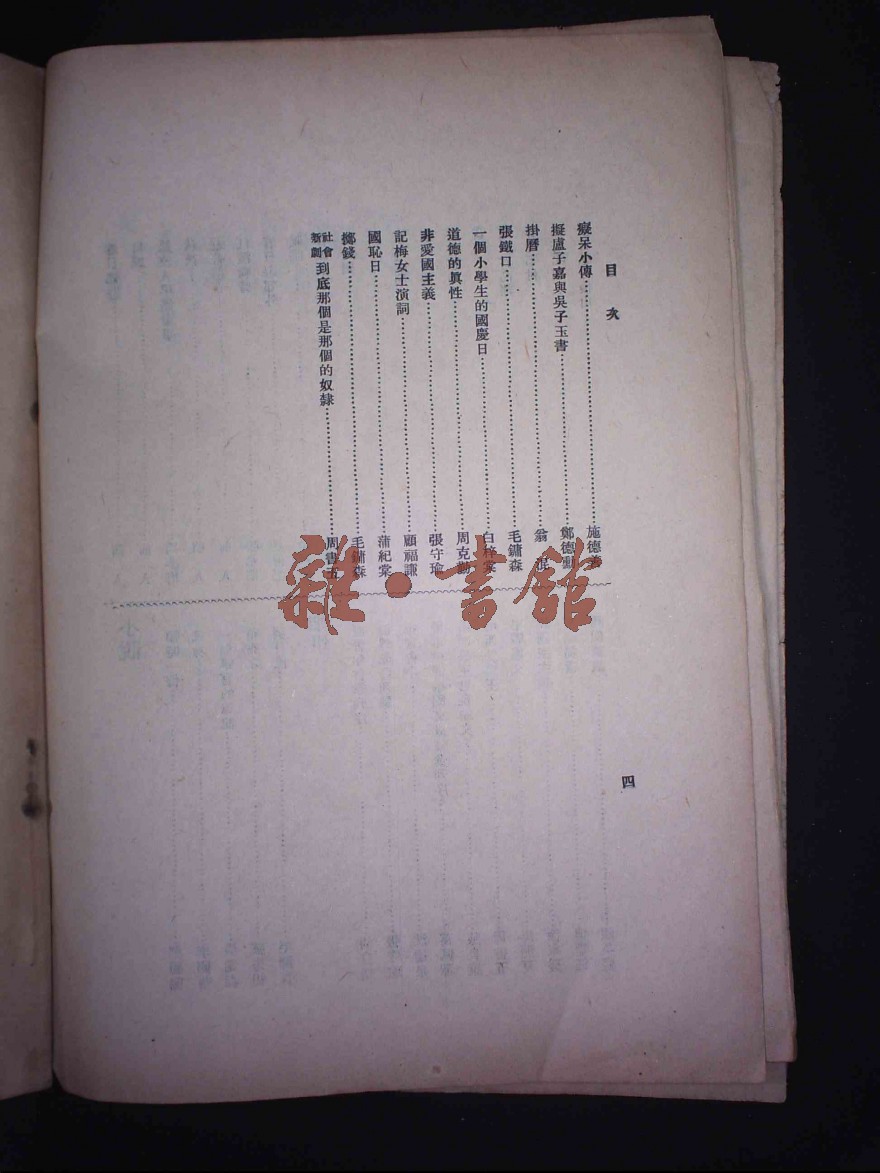 目次
癡呆小傳 施德
擬盧子嘉與吳子玉書 鄭德勳
掛曆 翁
張鐵口 毛鏞森
一個小學生的國慶日 白梓棠
道德的眞性 周克勤
非愛國主義 張守瑜
記梅女士演詞 顧福謙
國恥日 蒲紀棠
擲錢 毛鏞森
社會新劇 到底那個是那個的奴隸 周書五
四
雜・書館